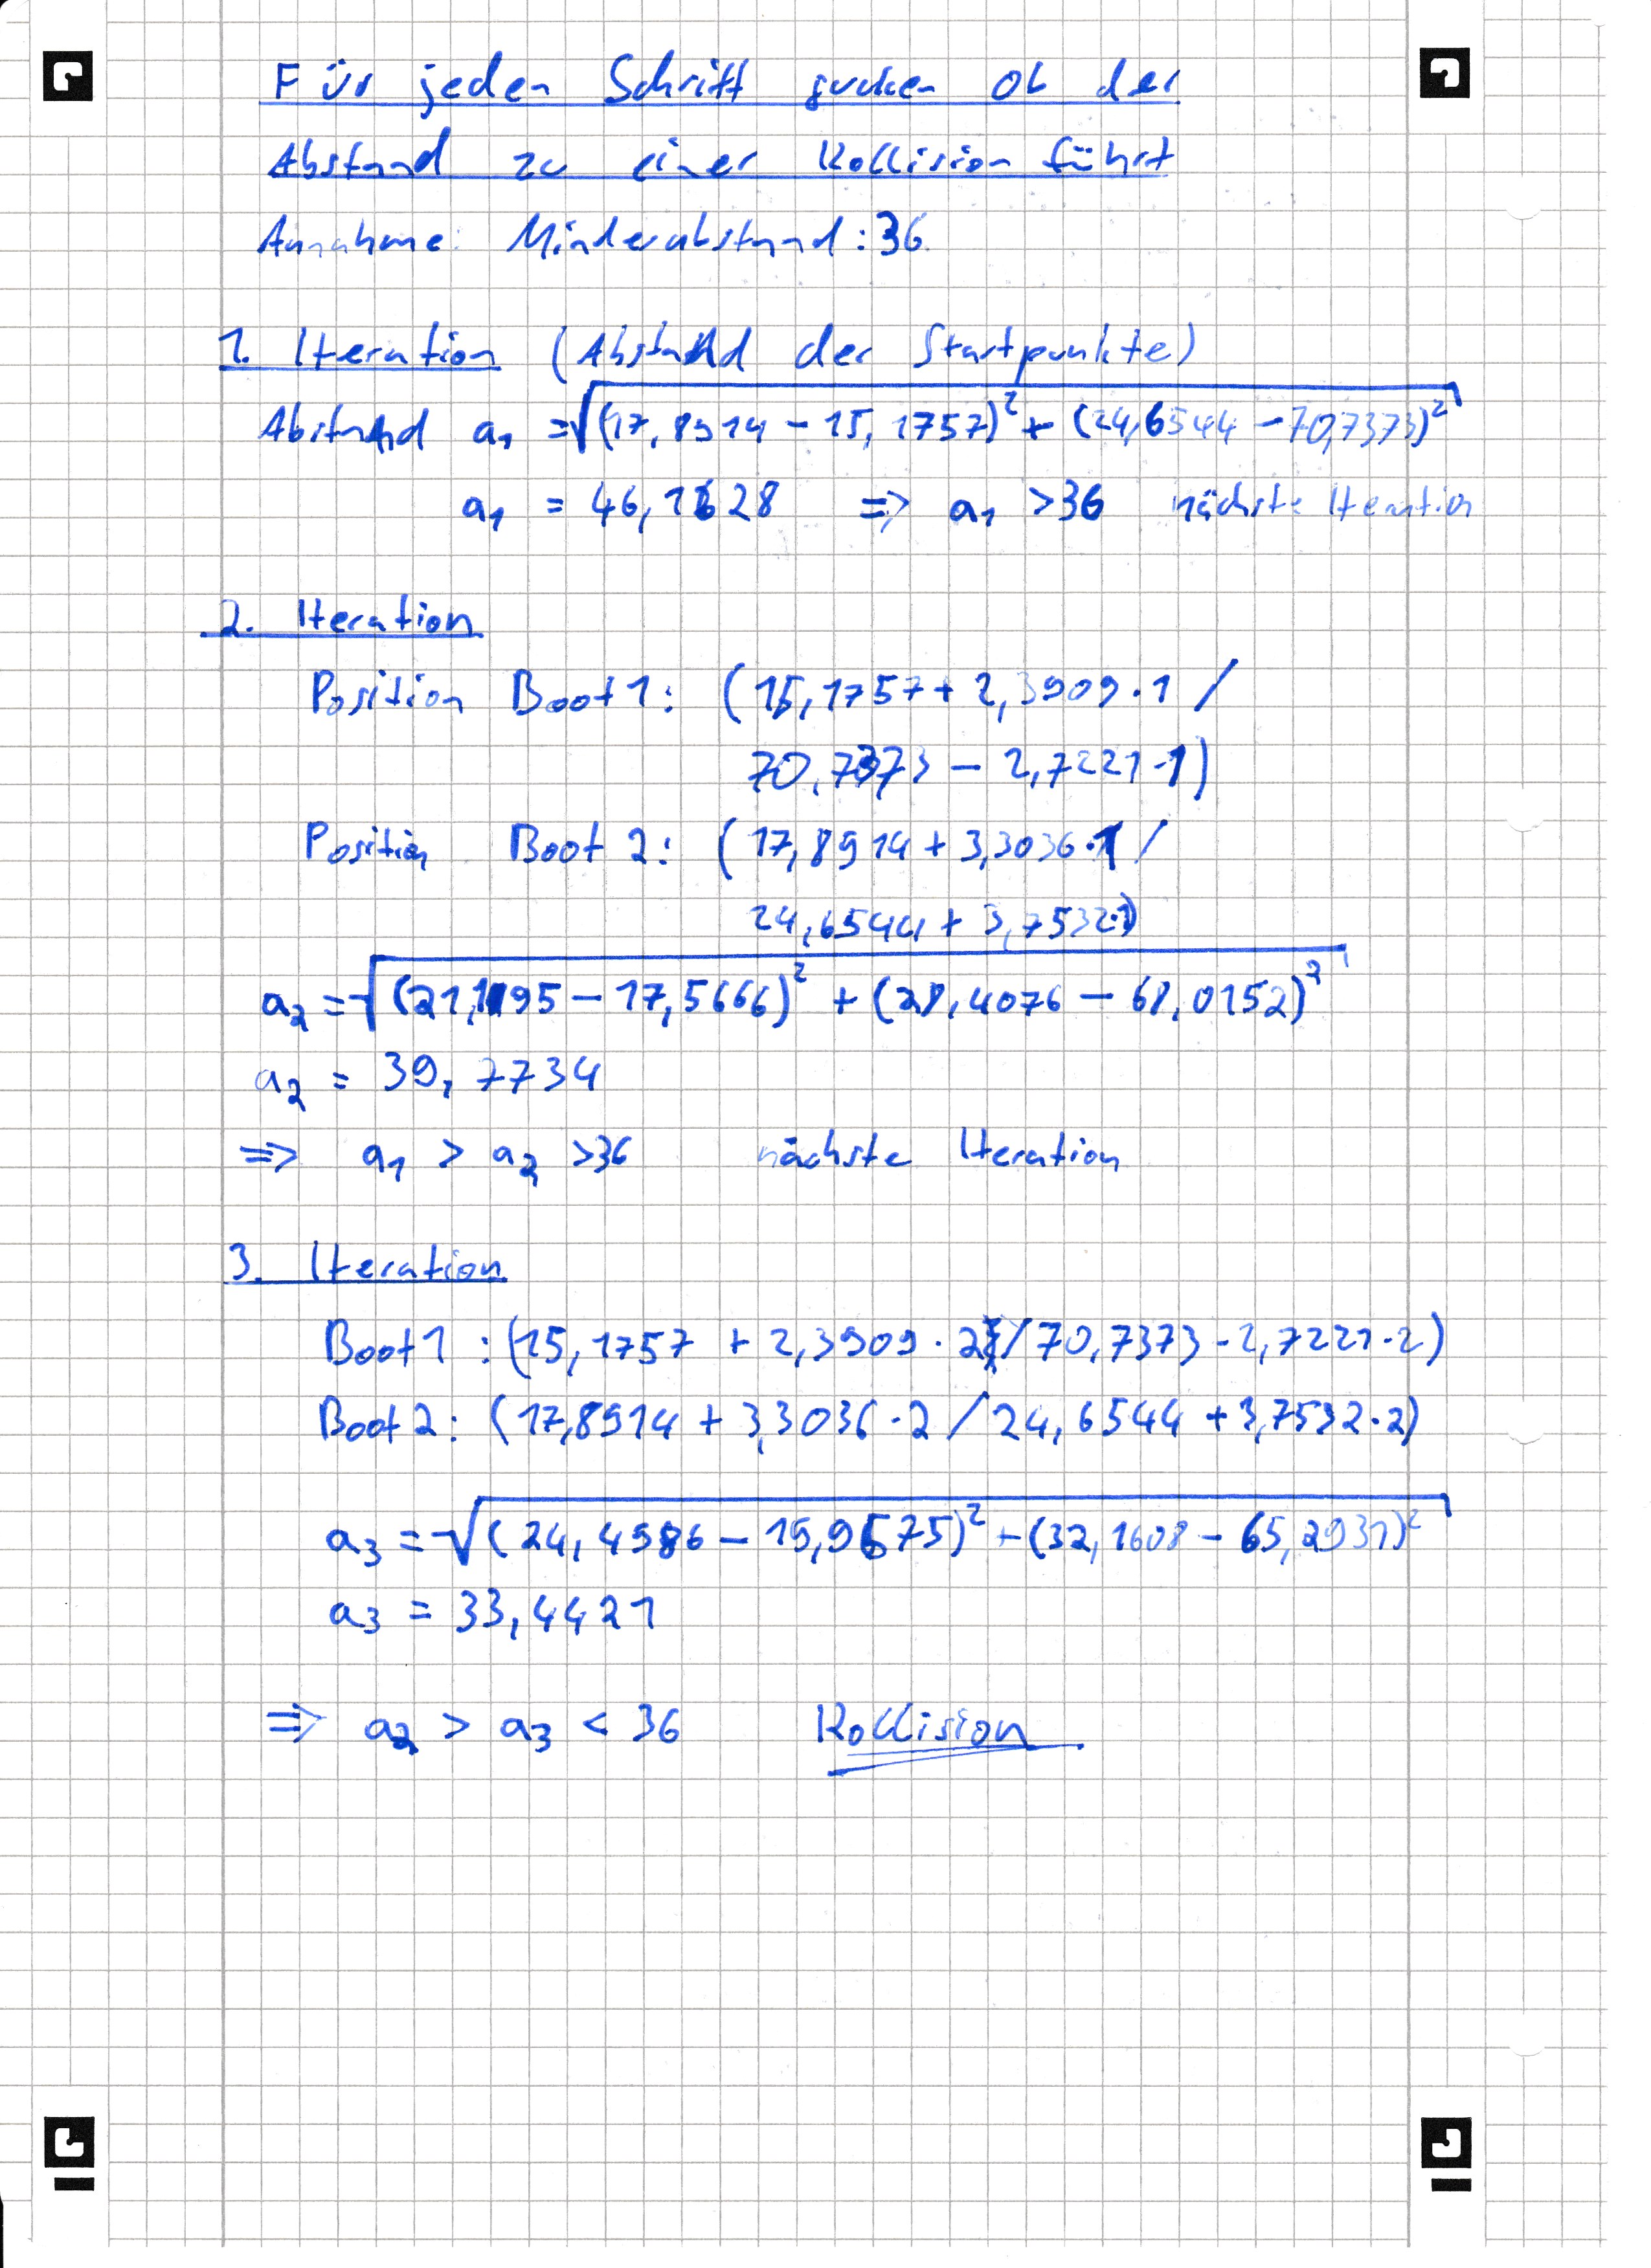 Für jeden Schritt gucken ob der
Abstand zu einer Kollision führt
Annahme: Minderabstand: 36
1. Iteration (Abstand der Startpunkte)
Abstand a₁ = √((17,8914 - 15,1757)² + (24,6544 - 70,7373)²)
a₁ = 46,1628 ⇒ a₁ > 36 nächste Iteration
2. Iteration
Position Boot 1: (15,1757 + 2,3909 · 1 /
70,7373 - 2,7221 · 1)
Position Boot 2: (17,8914 + 3,3036 · 1 /
24,6544 + 3,7532 · 1)
a₂ = √((21,1195 - 17,5666)² + (28,4076 - 68,0152)²)
a₂ = 39,7734
⇒ a₁ > a₂ > 36 nächste Iteration
3. Iteration
Boot 1: (15,1757 + 2,3909 · 2 / 70,7373 - 2,7221 · 2)
Boot 2: (17,8914 + 3,3036 · 2 / 24,6544 + 3,7532 · 2)
a₃ = √((24,4986 - 19,9575)² + (32,1608 - 65,2931)²)
a₃ = 33,4421
⇒ a₂ > a₃ < 36 Kollision